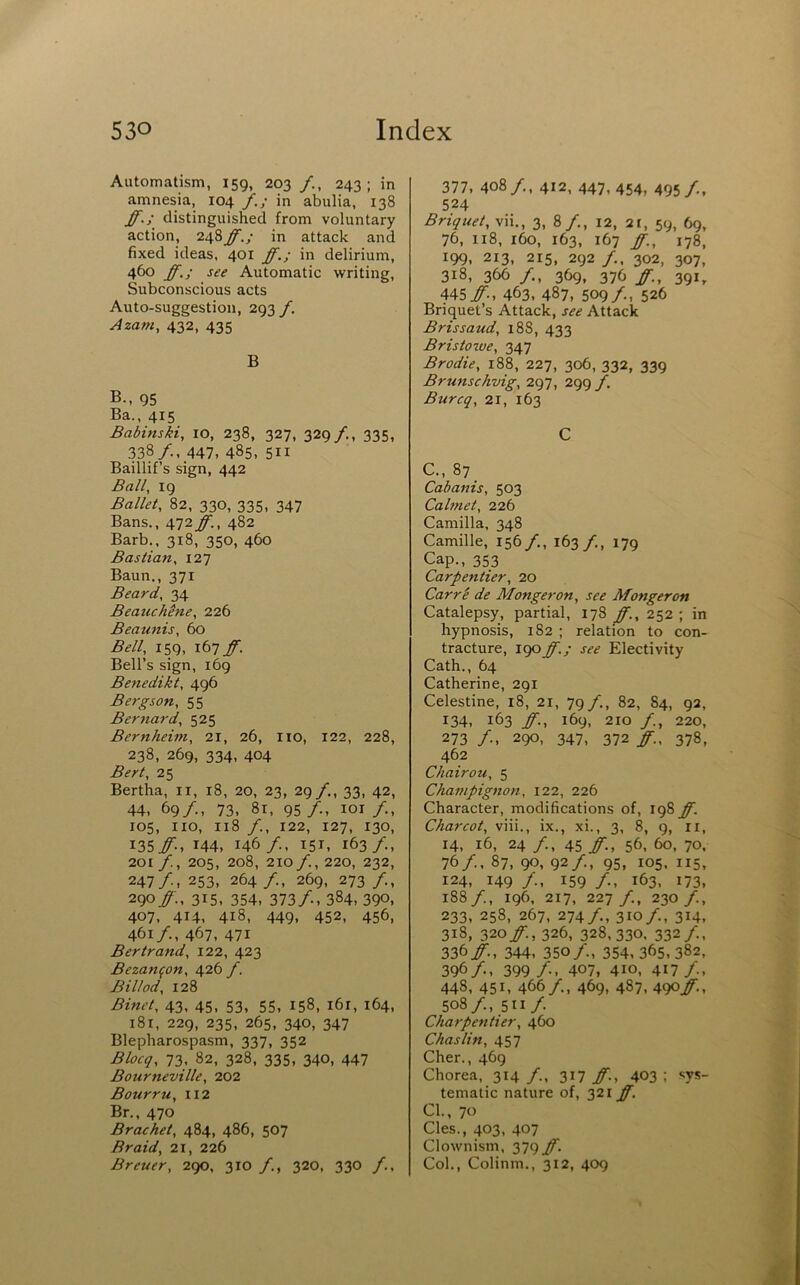 530 Index
Automatism, 159, 203 f., 243 ; in
amnesia, 104 f.; in abulia, 138
ff.; distinguished from voluntary
action, 248 ff.; in attack and
fixed ideas, 401 ff.; in delirium,
460 ff.; see Automatic writing,
Subconscious acts
Auto-suggestion, 293 f.
Azam, 432, 435
B
B., 95
Ba., 415
Babinski, 10, 238, 327, 329 f., 335,
338 f., 447, 485, 511
Baillif's sign, 442
Ball, 19
Ballet, 82, 330, 335, 347
Bans., 472 ff., 482
Barb., 318, 350, 460
Bastian, 127
Baun., 371
Beard, 34
Beauchêne, 226
Beaunis, 60
Bell, 159, 167 ff.
Bell's sign, 169
Benedikt, 496
Bergson, 55
Bernard, 525
Bernheim, 21, 26, 110, 122, 228,
238, 269, 334, 404
Bert, 25
Bertha, 11, 18, 20, 23, 29 f., 33, 42,
44, 69 f., 73, 81, 95 f., 101 f.,
105, 110, 118 f., 122, 127, 130,
135 ff., 144, 146 f., 151, 163 f.,
201 f., 205, 208, 210 f., 220, 232,
247 f., 253, 264 f., 269, 273 f.,
290 ff., 315, 354, 373 f., 384, 390,
407, 414, 418, 449, 452, 456,
461 f., 467, 471
Bertrand, 122, 423
Bezançon, 426 f.
Billod, 128
Binet, 43, 45, 53, 55, 158, 161, 164,
181, 229, 235, 265, 340, 347
Blepharospasm, 337, 352
Blocq, 73, 82, 328, 335, 340, 447
Bourneville, 202
Bourru, 112
Br., 470
Brachet, 484, 486, 507
Braid, 21, 226
Breuer, 290, 310 f., 320, 330 f.,
377, 408 f., 412, 447, 454, 495 f.,
524
Briquet, vii., 3, 8 f., 12, 21, 59, 69,
76, 118, 160, 163, 167 ff., 178,
199, 213, 215, 292 f., 302, 307,
318, 366 f., 369, 376 ff., 391,
445 ff., 463, 487, 509 f., 526
Briquet's Attack, see Attack
Brissaud, 188, 433
Bristowe, 347
Brodie, 188, 227, 306, 332, 339
Brunschvig, 297, 299 f.
Burcq, 21, 163
C
C., 87
Cabanis, 503
Calmet, 226
Camilla, 348
Camille, 156 f., 163 f., 179
Cap., 353
Carpentier, 20
Carré de Mongeron, see Mongeron
Catalepsy, partial, 178 ff., 252 ; in
hypnosis, 182 ; relation to con-
tracture, 190 ff.; see Electivity
Cath., 64
Catherine, 291
Celestine, 18, 21, 79 f., 82, 84, 92,
134, 163 ff., 169, 210 f., 220,
273 f., 290, 347, 372 ff., 378,
462
Chairou, 5
Champignon, 122, 226
Character, modifications of, 198 ff.
Charcot, viii., ix., xi., 3, 8, 9, 11,
14, 16, 24 f., 45 ff., 56, 60, 70,
76 f., 87, 90, 92 f., 95, 105, 115,
124, 149 f., 159 f., 163, 173,
188 f., 196, 217, 227 f., 230 f.,
233, 258, 267, 274 f., 310 f., 314,
318, 320 ff., 326, 328, 330, 332 f.,
336 ff., 344, 350 f., 354, 365, 382,
396 f., 399 f., 407, 410, 417 f.,
448, 451, 466 f., 469, 487, 490 ff.,
508 f., 511 f.
Charpentier, 460
Chaslin, 457
Cher., 469
Chorea, 314 f., 317 ff., 403 ; sys-
tematic nature of, 321 ff.
Cl., 70
Cles., 403, 407
Clownism, 379 ff.
Col., Colinm., 312, 409